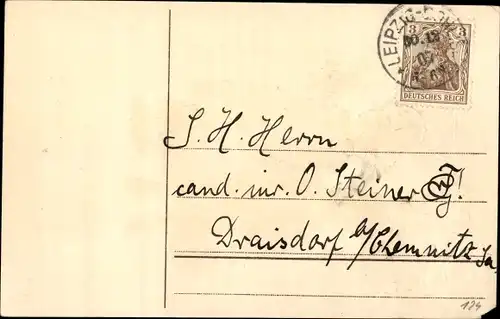 LEIPZIG
30.12
07
3 3
DEUTSCHES REICH
S. H. Herrn
cand. iur. O. Steiner !
Draisdorf b/Chemnitz Sa.
124